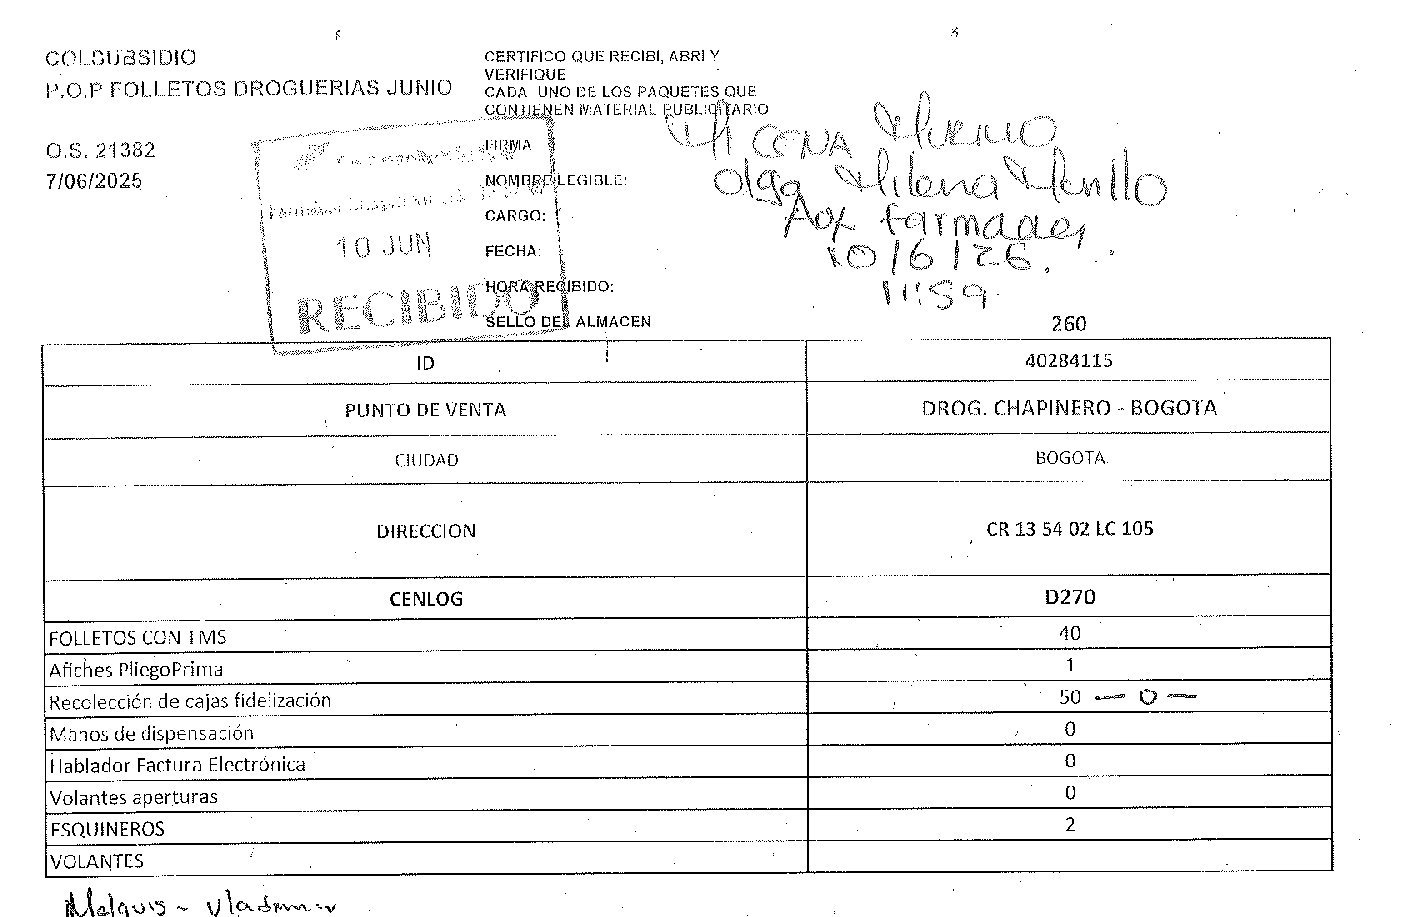 COLSUBSIDIO
P.O.P FOLLETOS DROGUERIAS JUNIO
O.S. 21382
7/06/2025
CERTIFICO QUE RECIBI, ABRI Y
VERIFIQUE
CADA UNO DE LOS PAQUETES QUE
CONTIENEN MATERIAL PUBLICITARIO
FIRMA
NOMBRE LEGIBLE: Olga Milena Murillo
CARGO: Aux farmacia
FECHA: 10/6/26.
HORA RECIBIDO: 11:59
SELLO DEL ALMACEN
10 JUN
RECIBIDO
260
ID 40284115
PUNTO DE VENTA DROG. CHAPINERO - BOGOTA
CIUDAD BOGOTA
DIRECCION CR 13 54 02 LC 105
CENLOG D270
FOLLETOS CON IMS 40
Afiches PliegoPrima 1
Recolección de cajas fidelización 50 — 0 —
Manos de dispensación 0
Hablador Factura Electrónica 0
Volantes aperturas 0
ESQUINEROS 2
VOLANTES